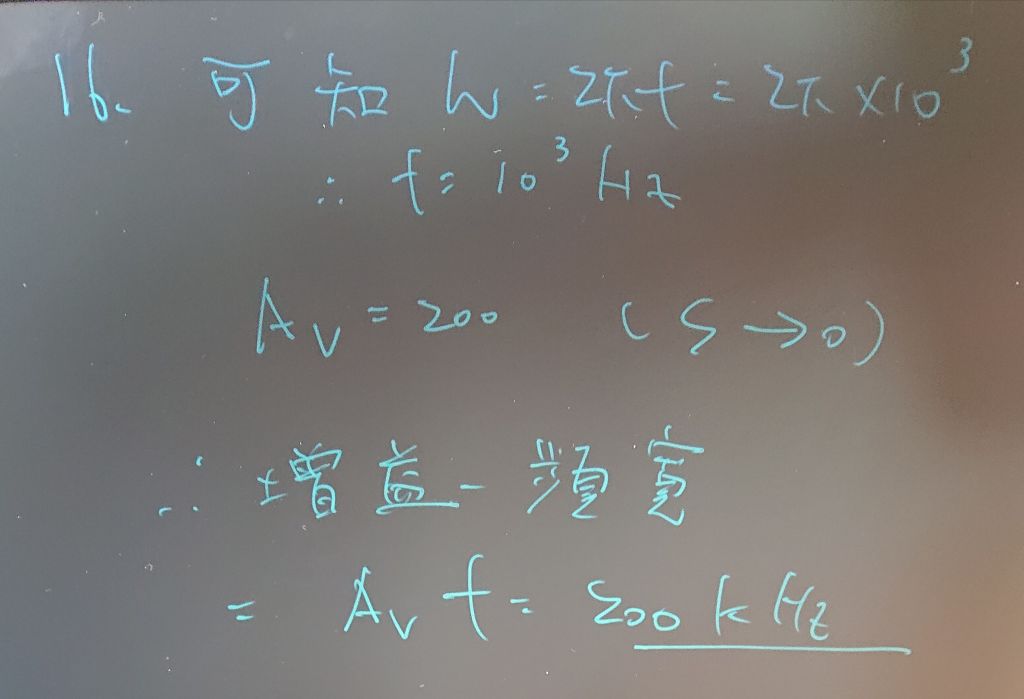 16. 可知 W = 2πf = 2π×10³
∴ f = 10³ Hz
Av = 200 (S → 0)
∴ 增益-頻寬
= Av f = 200 k Hz